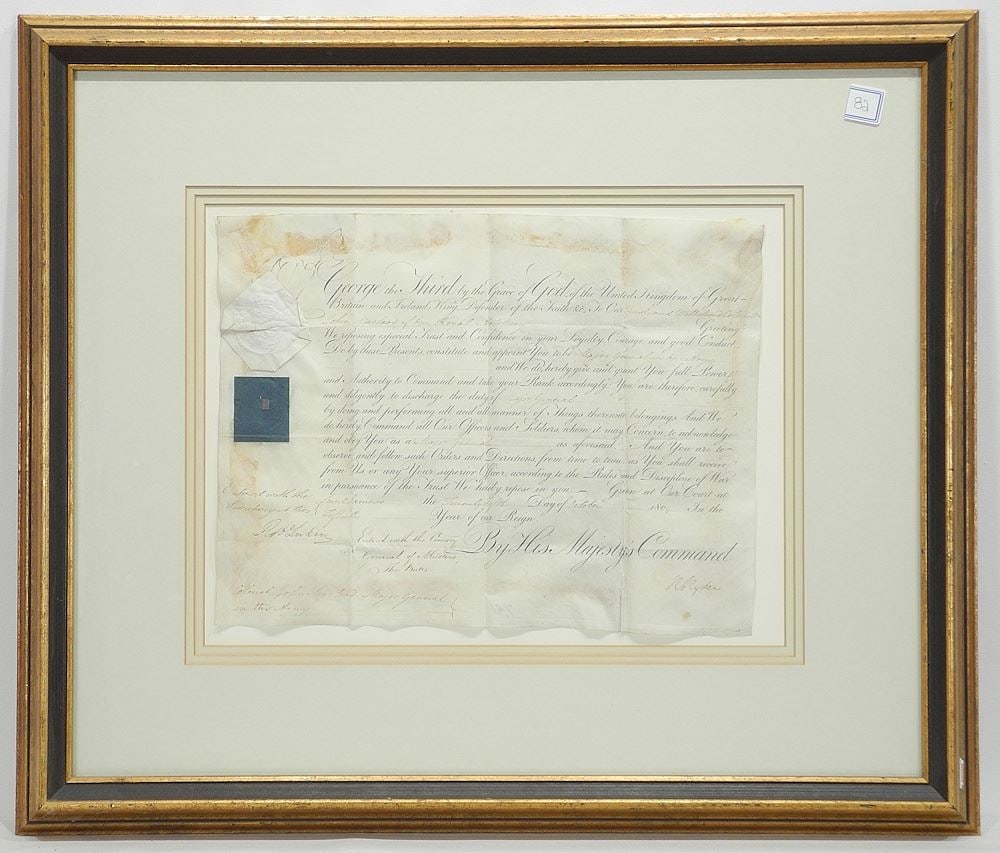 82
George the Third by the Grace of God, of the United Kingdom of Great-
Britain and Ireland King, Defender of the Faith &c, To Our
Royal Greeting
We reposing especial Trust and Confidence in your Loyalty, Courage and good Conduct,
Do by these Presents constitute and appoint You to be Major General
and We do hereby give and grant You full Power
and Authority to Command and take your Rank accordingly. You are therefore carefully
and diligently to discharge the duty of Major General
by doing and performing all and all manner of Things thereunto belonging. And We
do hereby Command all Our Officers and Soldiers whom it may Concern to acknowledge
and obey You as a Major General as aforesaid. And You are to
observe and follow such Orders and Directions from time to time as You shall receive
from Us, or any Your superior Officer, according to the Rules and Discipline of War,
in pursuance of the Trust We hereby repose in you. Given at Our Court at
Saint James's the Day of October 180 In the
Year of our Reign
By His Majesty's Command
Enter'd with the
Enter'd with the Comssy
General of Musters
R Ryder
Colonel John Major General
in the Army